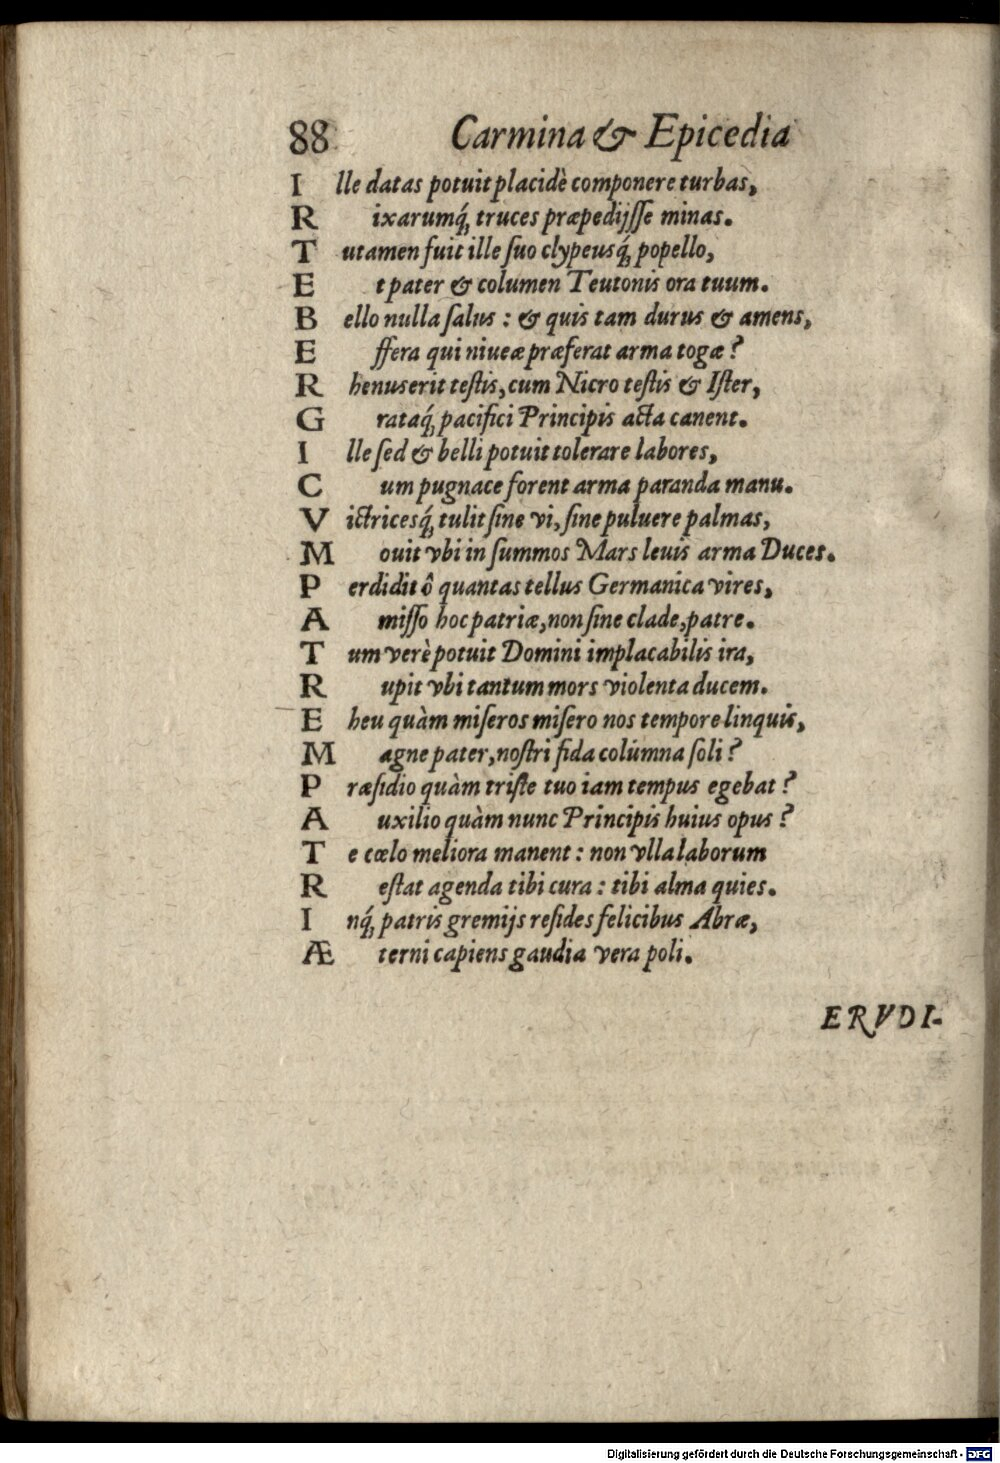 88 Carmina & Epicedia
I lle datas potuit placidè componere turbas,
R ixarumq́; truces præpedijſſe minas.
T utamen fuit ille ſuo clypeusq́; popello,
E t pater & columen Teutonis ora tuum.
B ello nulla ſalus : & quis tam durus & amens,
E ffera qui niueæ præferat arma togæ ?
R henus erit teſtis, cum Nicro teſtis & Iſter,
G rataq́; pacifici Principis acta canent.
I lle ſed & belli potuit tolerare labores,
C um pugnace forent arma paranda manu.
V ictricesq́; tulit ſine vi, ſine puluere palmas,
M ouit vbi in ſummos Mars leuis arma Duces.
P erdidit ô quantas tellus Germanica vires,
A miſſo hoc patriæ, non ſine clade, patre.
T um verè potuit Domini implacabilis ira,
R upit vbi tantum mors violenta ducem.
E heu quàm miſeros miſero nos tempore linquis,
M agne pater, noſtri fida colúmna ſoli ?
P ræſidio quàm triſte tuo iam tempus egebat ?
A uxilio quàm nunc Principis huius opus ?
T e cœlo meliora manent : non vlla laborum
R eſtat agenda tibi cura : tibi alma quies.
I nq́; patris gremijs reſides felicibus Abræ,
Æ terni capiens gaudia vera poli.
ERVDI-
Digitalisierung gefördert durch die Deutsche Forschungsgemeinschaft - DFG